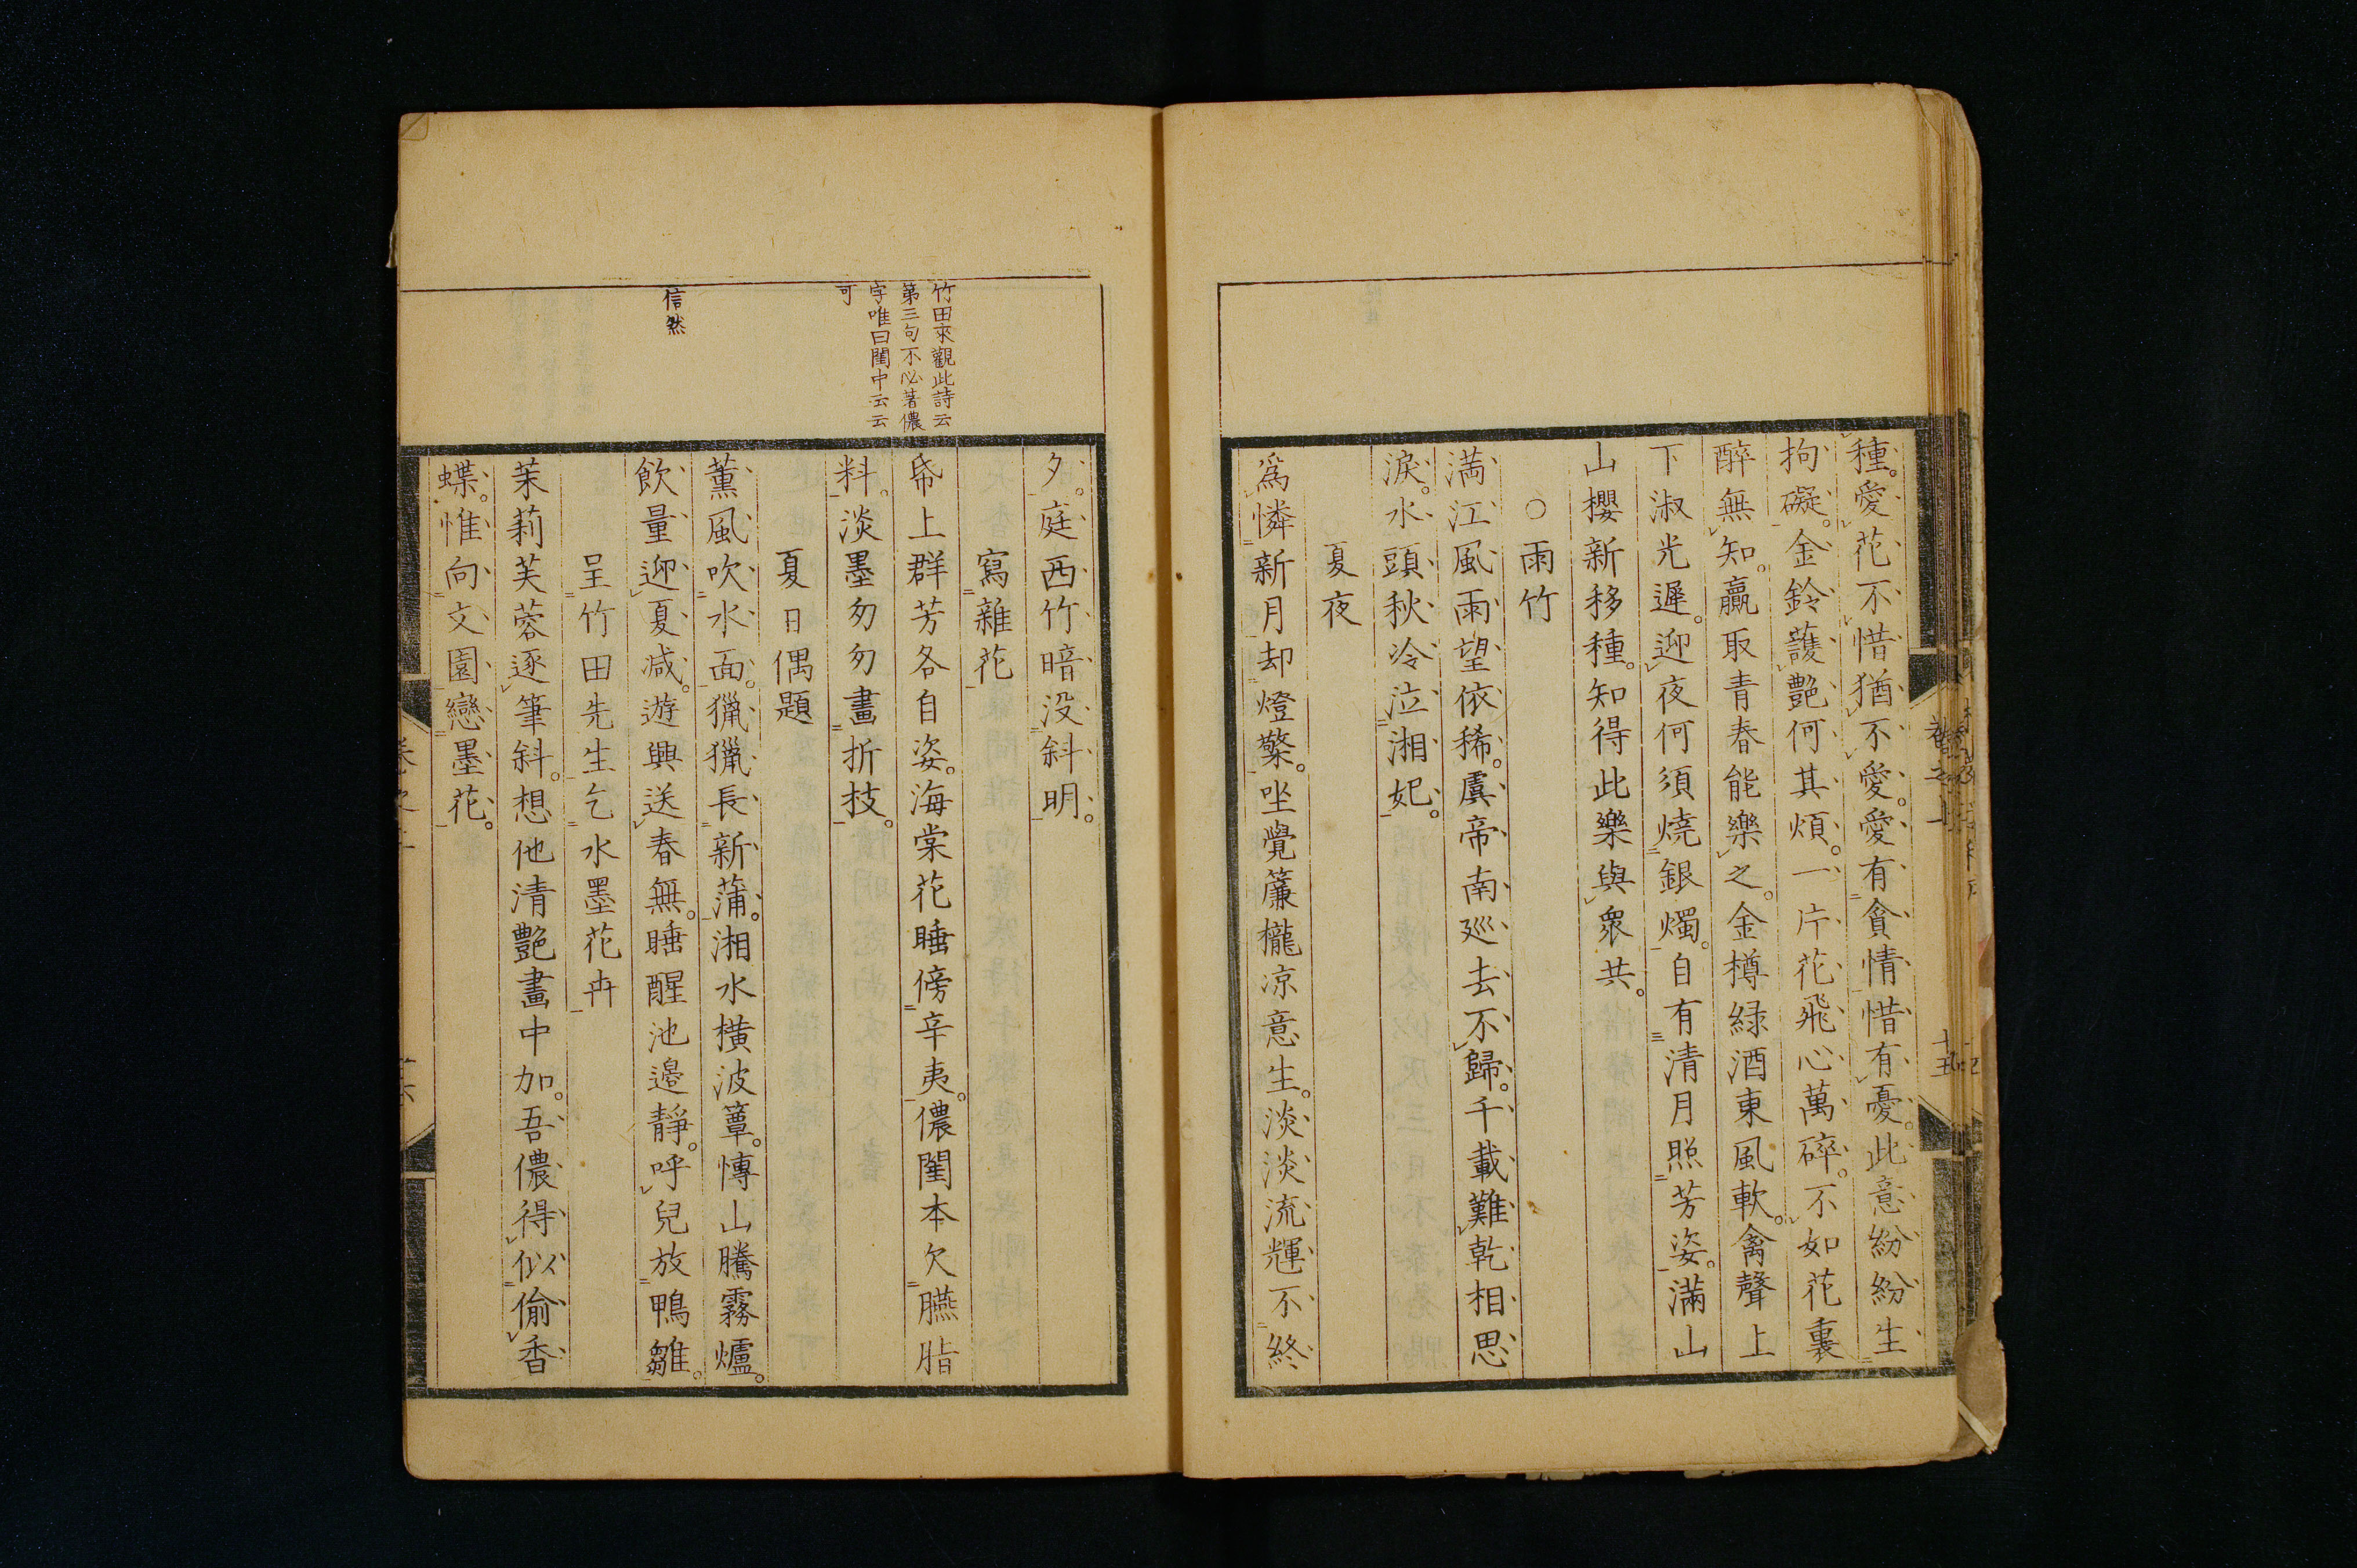 種。愛花不惜猶不愛。愛有貪情惜有憂。此意紛紛生
拘礙。金鈴護艷何其煩。一片花飛心萬碎。不如花裏
醉無知。贏取青春能樂之。金樽緑酒東風軟。禽聲上
下淑光遲。迎夜何須燒銀燭。自有清月照芳姿。滿山
山櫻新移種。知得此樂與衆共。
○雨竹
满江風雨望依稀。虞帝南廵去不歸。千載難乾相思
淚。水頭秋冷泣湘妃。
夏夜
爲憐新月却燈檠。坐覺簾櫳凉意生。淡淡流輝不終
夕。庭西竹暗没斜明。
寫雜花
帋上群芳各自姿。海棠花睡傍辛夷。儂閨本欠臙脂
料。淡墨匆匆畫折枝。
竹田來觀此詩云
第三句不必著儂
字唯曰閨中云云
可
夏日偶題
薰風吹水面。獵獵長新蒲。湘水横波簟。愽山騰霧爐。
飲量迎夏减。遊興送春無。睡醒池邉靜。呼兒放鴨雛。
信然
呈竹田先生乞水墨花卉
茉莉芙蓉逐筆斜。想他清艷畫中加。吾儂得似偷香
蝶。惟向文園戀墨花。